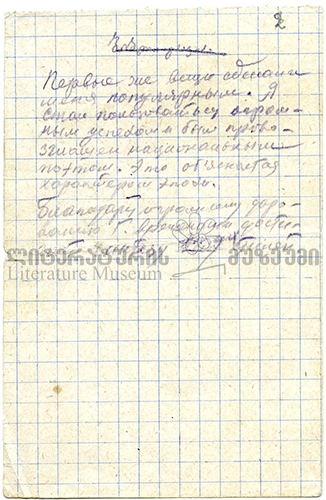 2
Первые же вещи сделали
меня популярным. Я
стал пользоваться огром-
ным успехом и был прово-
зглашен национальным
поэтом. Это объясняется
характером эпохи.
Благодаря огромному даро-
ванию
ლიტერატურის მუზეუმი
Literature Museum